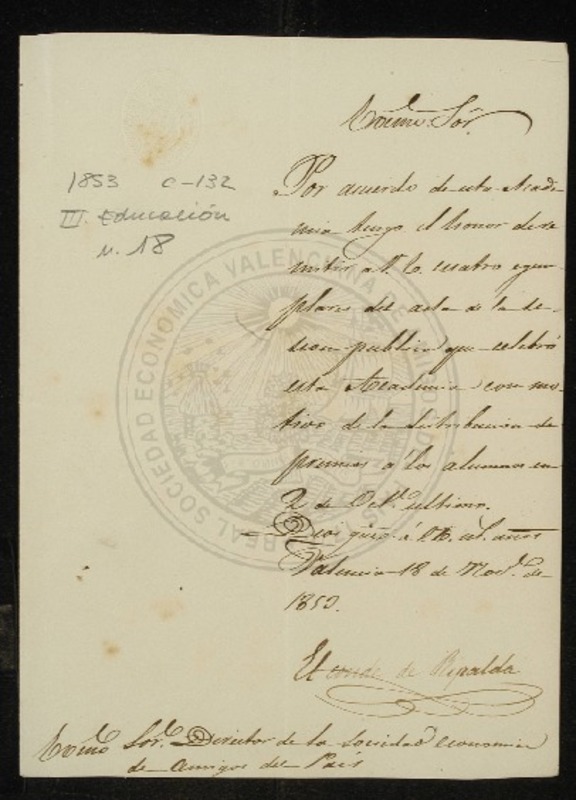 Excmo. Sór.
1853 C-132
III. Educación
n. 18
Por acuerdo de esta Acade
mia tengo el honor de re
mitir a V.E. cuatro egem
plares del acta de la se-
sion publica que celebró
esta Academia con mo-
tivo de la distribucion de
premios á los alumnos en
2 de Oct.e ultimo.
Dios gue. á V.E. ms. años
Valencia 18 de Nov.e de
1853.
El conde de Ripalda
Excmo Sór. Director de la Sociedad economica
de Amigos del Pais
REAL SOCIEDAD ECONOMICA VALENCIANA DE AMIGOS DEL PAIS